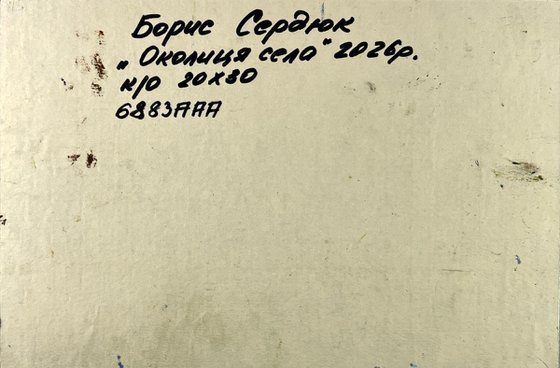 Борис Сердюк
„Околиця села" 2026р.
к/о 20х30
6883AAA